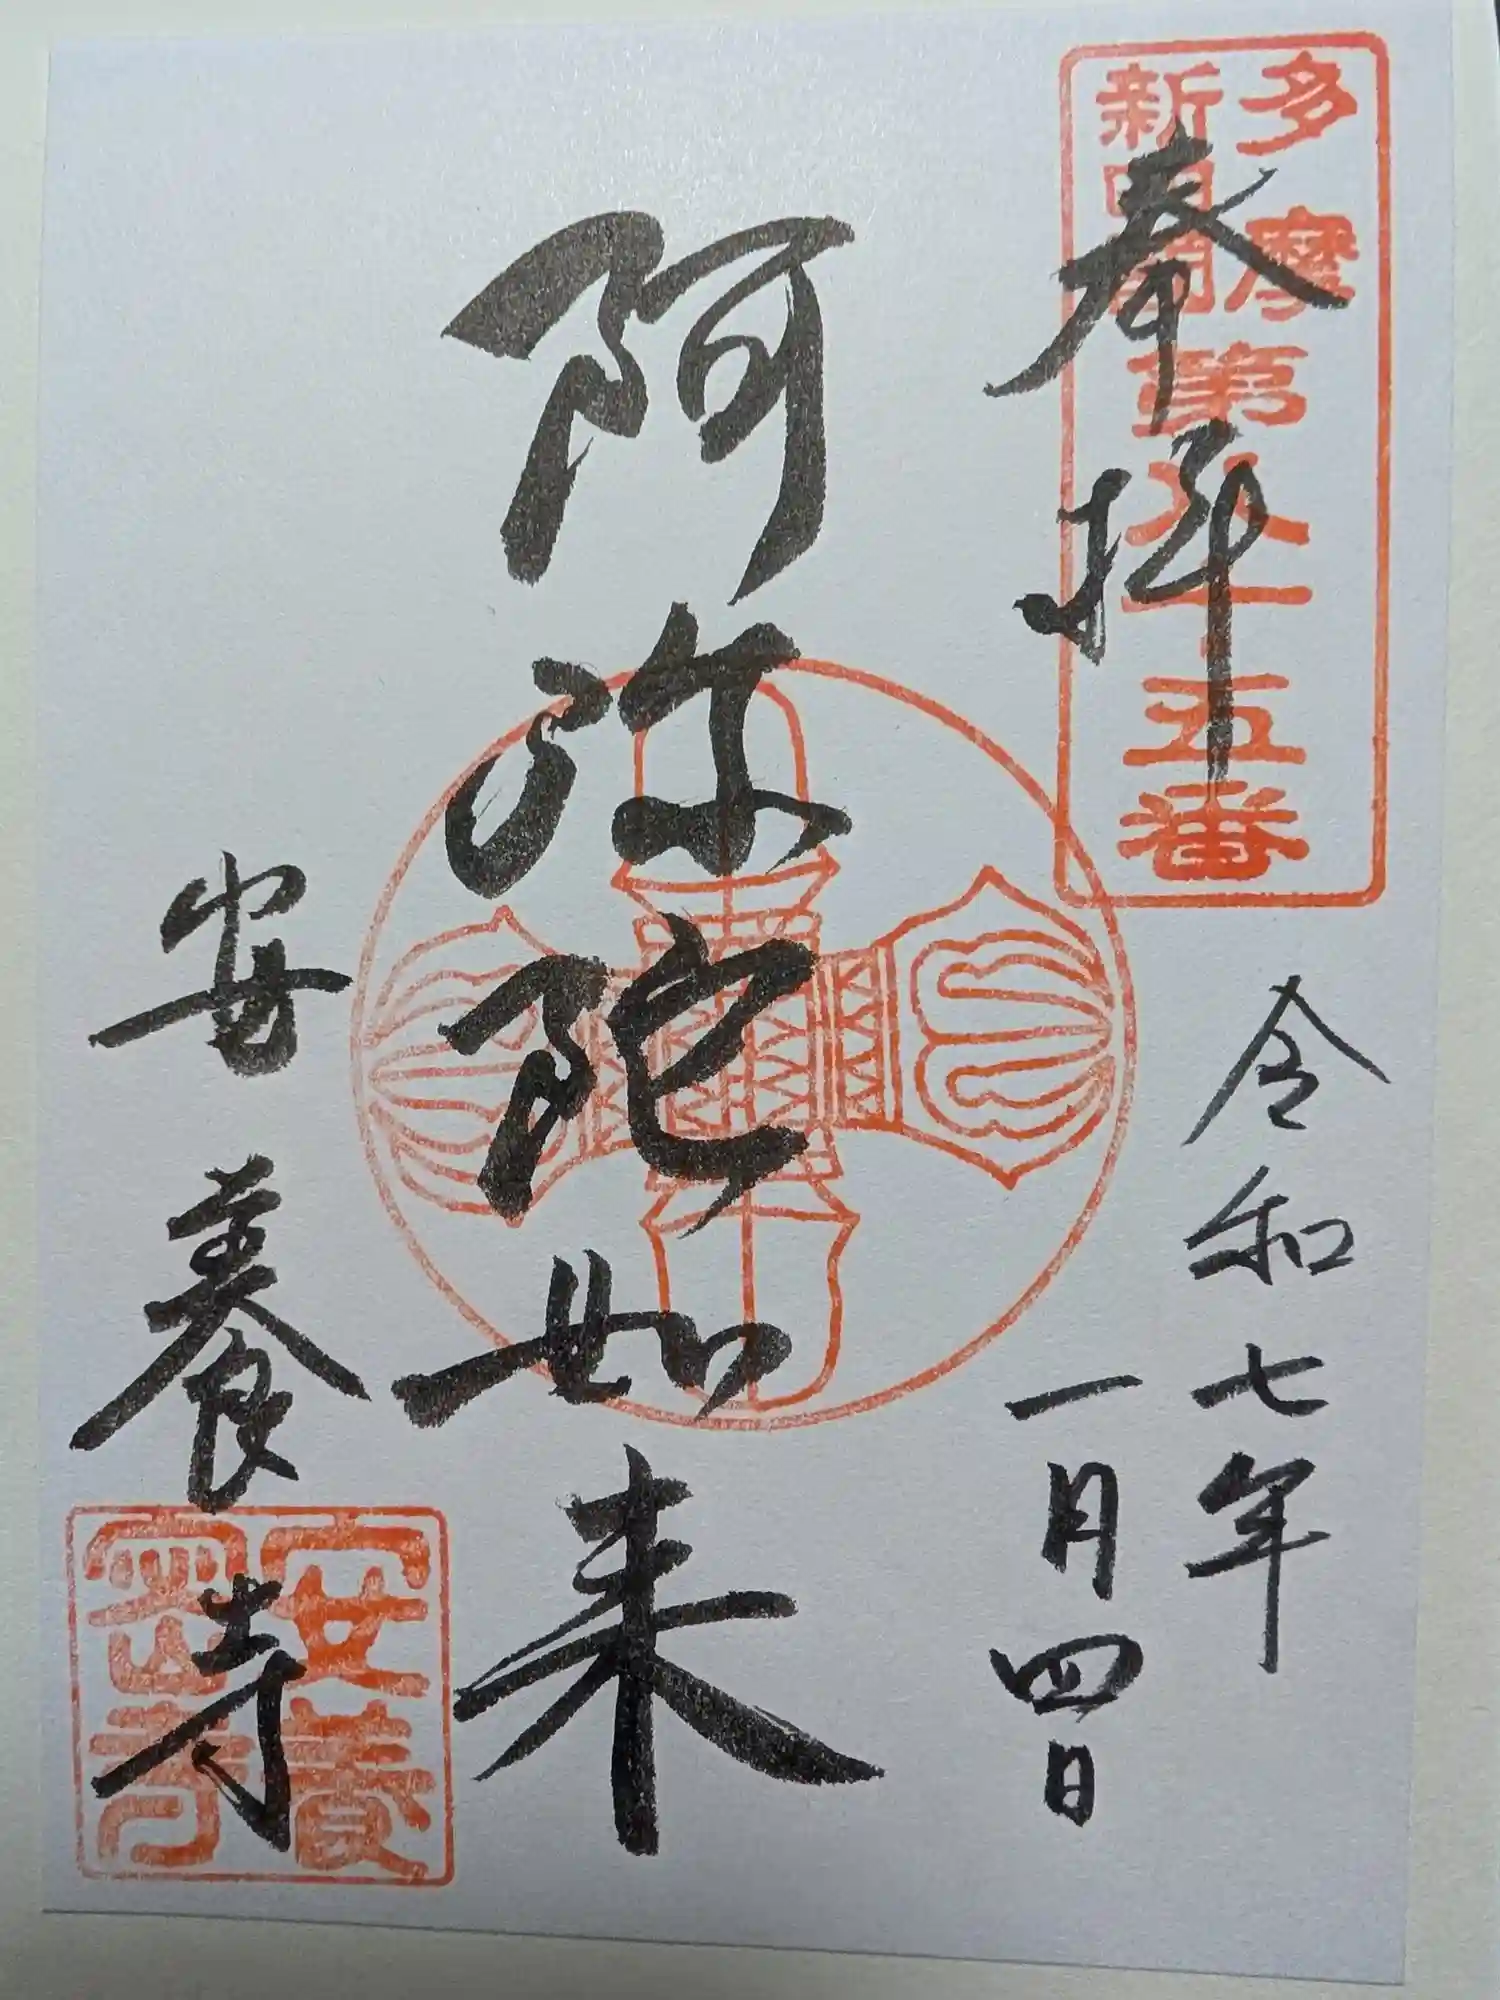 多摩
新四國
第八十五番
奉拝
令和七年
一月四日
阿弥陀如来
安養寺
安養
密寺